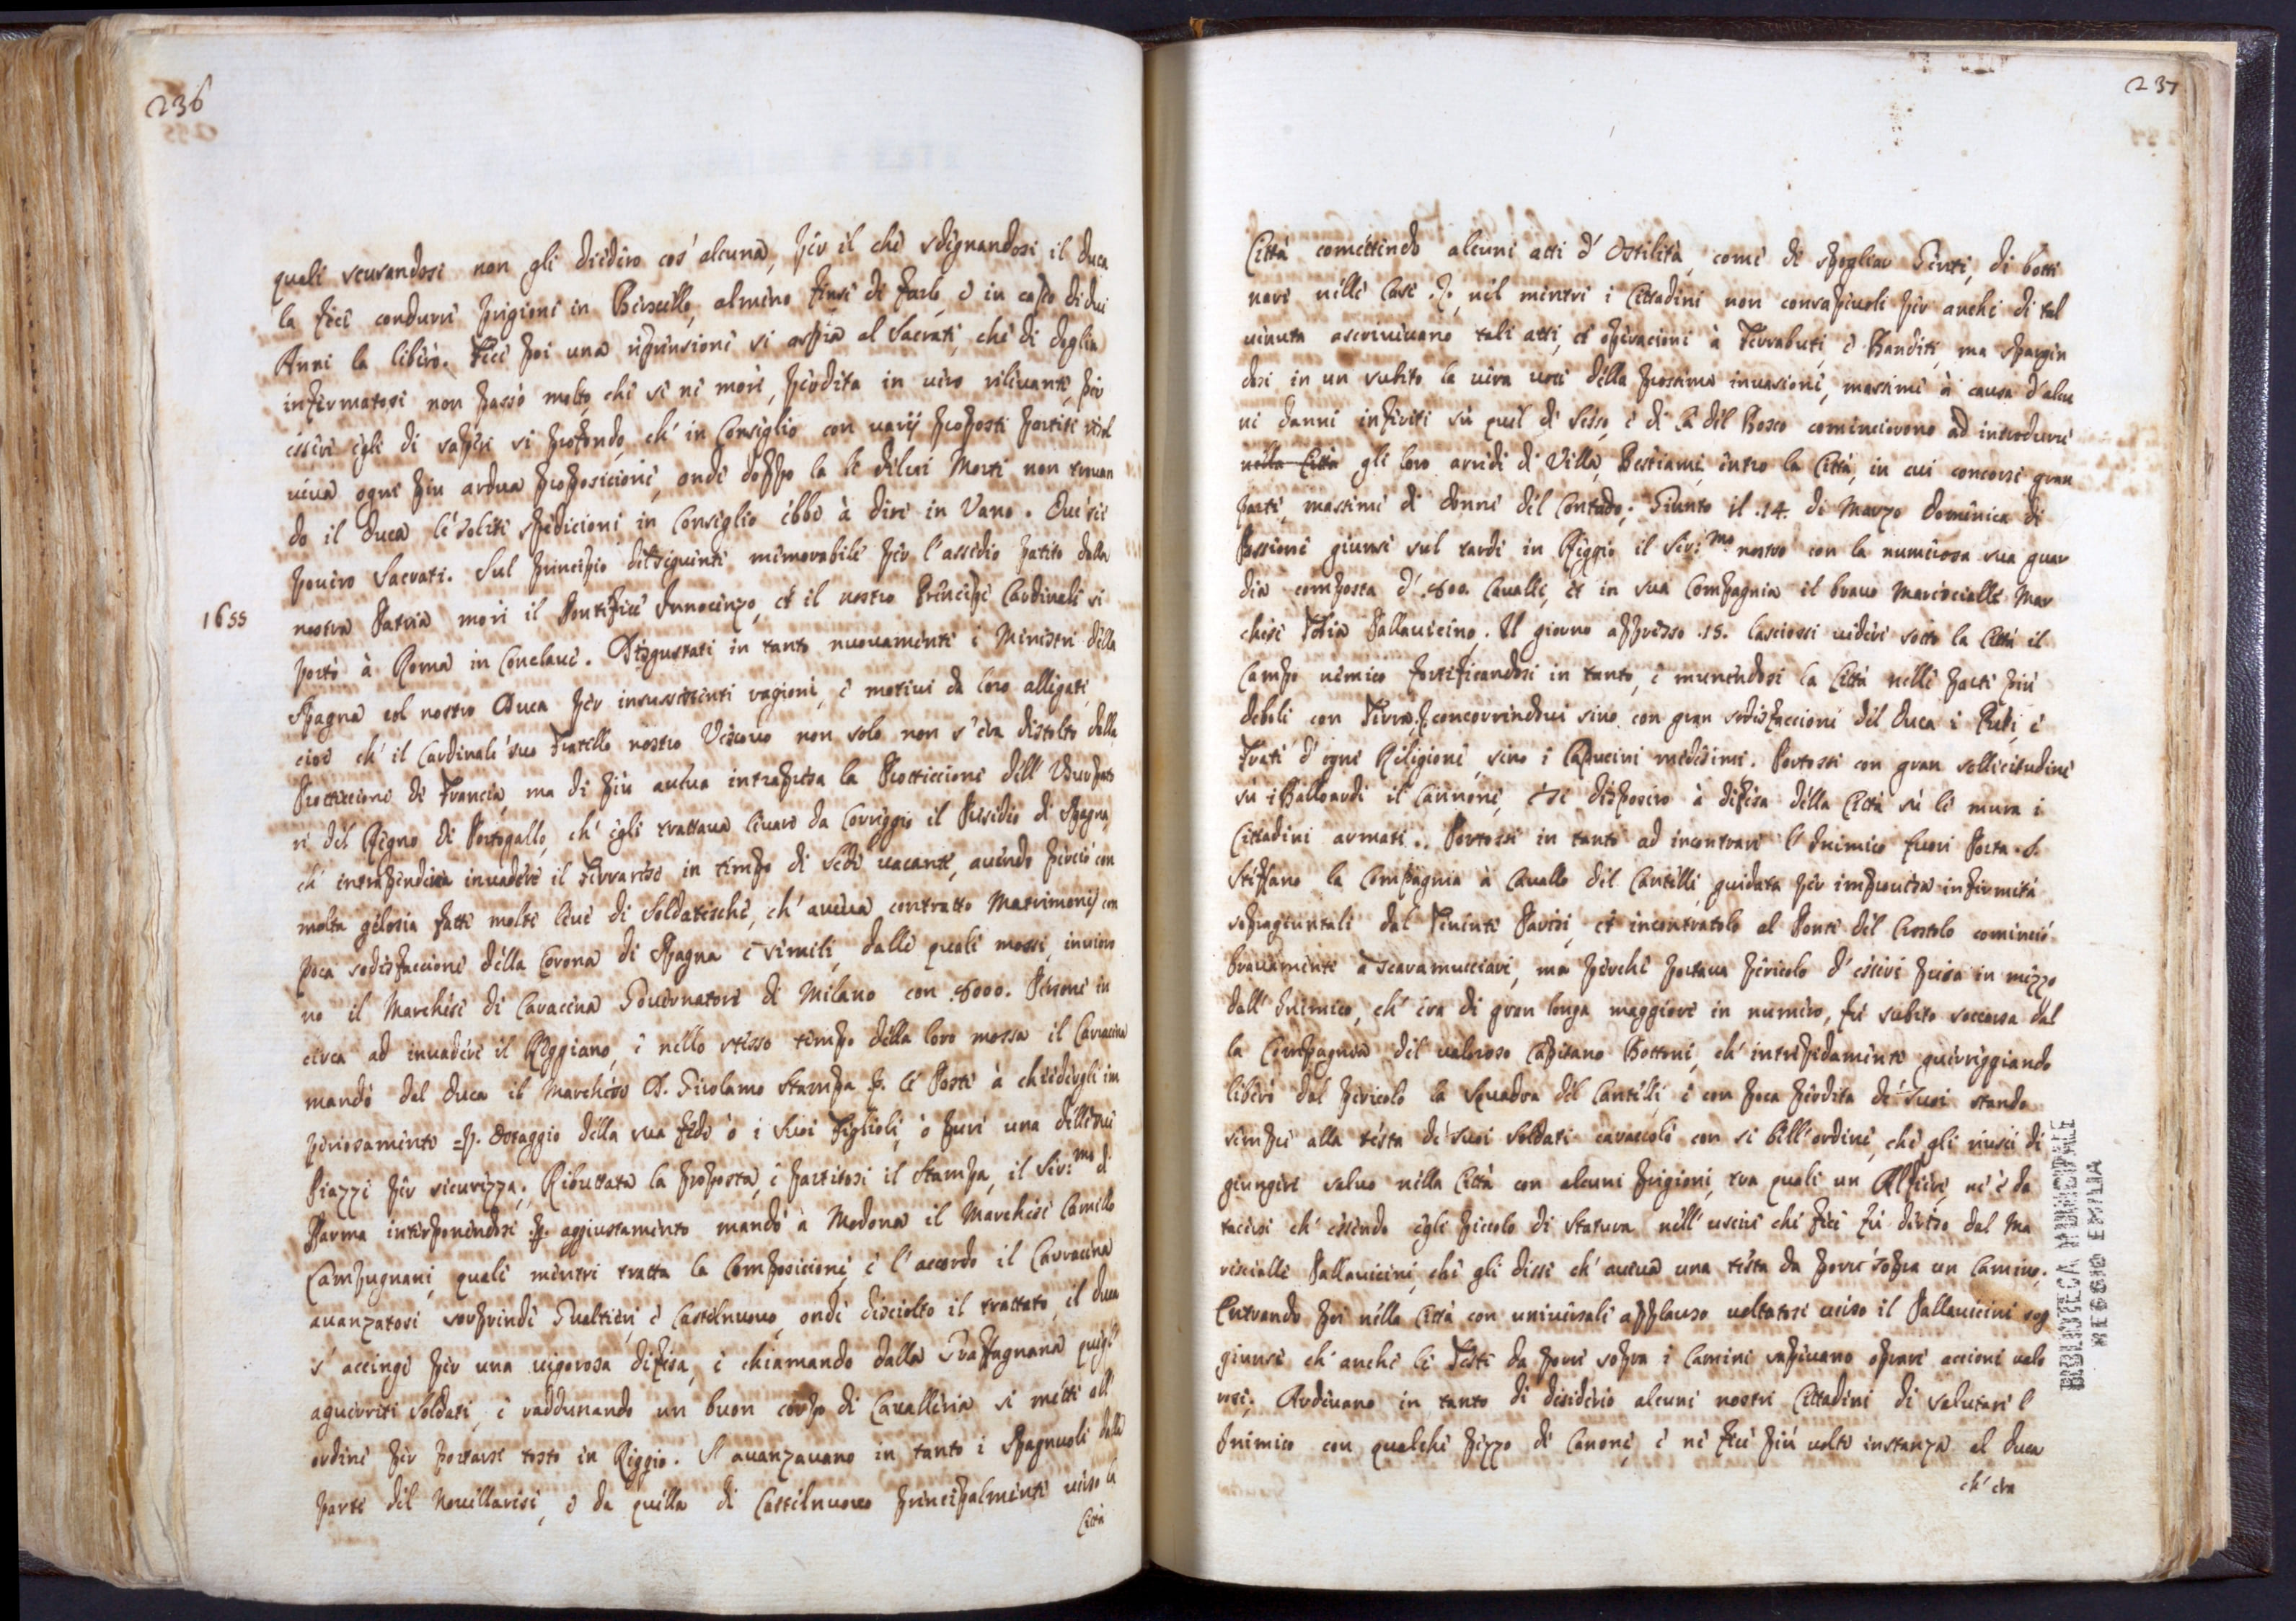 236
quali scusandosi non gli diedero cos' alcuna, per il che sdegnandosi il Duca
la fece condurre prigione in Bersello, almeno finse di farlo, e in capo di dui
Anni la liberò. Fece poi una riprensione si aspra al Sacrati, che di doglia
infermatosi non passò molto, che se ne morì, perdita in vero rilevante, per
essere egli di sapere si profondo, ch' in Consiglio con varij proposti partiti risol
veva ogni piu ardua proposicione, onde doppo la di lui Morte non trovan
do il Duca le solite spedicioni in Consiglio ebbe à dire in Vano. Ove sei
povero Sacrati. Sul principio del seguente memorabile per l'assedio patito dalla
1655
nostra Patria morì il Pontefice Innocenzo, et il nostro Principe Cardinale si
portò à Roma in Conclave. Disgustati in tanto nuovamente i Ministri della
Spagna col nostro Duca per insussistenti ragioni, e motivi da loro allegati,
cioè ch' il Cardinale suo Fratello nostro Vescovo non solo non s'era distolto dalla
Protteccione di Francia, ma di più aveva intrapresa la Protteccione dell' Usurpato
re del Regno di Portogallo, ch' egli trattava levare da Correggio il Presidio di Spagna,
ch' intraprendeva invadere il Ferrarese in tempo di Sede vacante, avendo perciò con
molta gelosia fatte molte leve di Soldatesche, ch' aveva contratto Matrimonij con
poca sodisfaccione della Corona di Spagna e simili, dalle quali mossi, inviaro
no il Marchese di Caracena Governatore di Milano con .8000. Persone in
circa ad invadere il Reggiano, e nello stesso tempo della loro mossa il Caracena
mandò dal Duca il Marchese D. Girolamo Stampa p. le Poste à chiedergli im
periosamente p. Ostaggio della sua fede ò i suoi Figlioli, ò pure una delle sue
Piazze per sicurezza; Ributtata la proposta, e partitosi il Stampa, il Ser.mo di
Parma interponendosi p. aggiustamento mandò à Modona il Marchese Camillo
Campugnani, quale mentre tratta la Composicione, e l'accordo il Caracena
avanzatosi sorprende Gualtieri, e Castelnuovo, onde disciolto il trattato, il Duca
s' accinge per una vigorosa difesa, e chiamando dalla Graffagnana quegl'
aguerriti Soldati, e raddunando un buon corpo di Cavalleria si mette all'
ordine per portarsi tosto in Reggio. S' avanzavano in tanto i Spagnuoli dalla
parte del Novellarese, e da quella di Castelnuovo principalmente verso la
Città
237
Città comettendo alcuni atti d' Ostilità, come di spogliar Genti, di botti
nare nelle Case .p., nel mentre i Cittadini non consapevoli per anche di tal
venuta ascrivevano tali atti, et operacioni à Ferrabuti, e Banditi, ma spargen
dosi in un subito la vera voce della prossima invasione, massime à causa d'alcu
ni danni inferiti sù quel di Sesso, e di là dil Bosco cominciorono ad introdurre
nella Città gli loro aredi di Villa, Bestiami, entro la Città, in cui concorse gran
parte, massime di donne del Contado; Giunto il .14. di Marzo Domenica di
Passione giunse sul tardi in Reggio il Ser.mo nostro con la numerosa sua guar
dia composta d' .800. Cavalli, et in sua Compagnia il bravo Maresciallo Mar
chese Tobia Pallavicino. Il giorno appresso .15. lasciossi videre sotto la Città il
Campo nemico fortificandosi in tanto, e munendosi la Città nelle parti più
deboli con Terra, p. concorrendovi sino con gran sodisfaccione del Duca i Preti, e
Frati d' ogni Religione, sino i Capucini medesimi. Portossi con gran sollecitudine
sù i Balloardi il Cannone, e si disposero à difesa della Città sù le mura i
Cittadini armati.. Portossi in tanto ad incontrare l' Inimico fuori Porta .S.
Steffano la Compagnia à Cavallo del Cantelli, guidata per improvisa infermità
sopragiuntali dal Tenente Parisi, et incontratolo al Ponte del Crostolo cominciò
bravamente à scaramucciare, ma perche portava pericolo d' essere presa in mezzo
dall' Inimico, ch' era di gran longa maggiore in numero, fù subito soccorsa dal
la Compagnia del valoroso Capitano Bottoni, ch' intrepidamente guerreggiando
liberò dal pericolo la Squadra del Cantelli, e con poca perdita de' Suoi stando
sempre alla testa de' suoi Soldati caracolò con si bell' ordine, che gli riuscì di
giungere salvo nella Città con alcuni prigioni, tra quali un Alfiere, ne è da
tacersi ch' essendo egli piccolo di Statura nell' uscire che fece fù deriso dal Ma
resciallo Pallavicini, che gli disse ch' aveva una testa da porre sopra un Camino.
Entrando poi nella Città con universale applauso voltatosi verso il Pallavicini sog
giunse ch' anche le Teste da porre sopra i Camini sapevano oprare accioni valo
rose. Ardevano in tanto di desiderio alcuni nostri Cittadini di salutare l'
Inimico con qualche pezzo di Canone, e ne fece più volte instanza al Duca
ch' era
BIBLIOTECA MUNICIPALE
REGGIO EMILIA